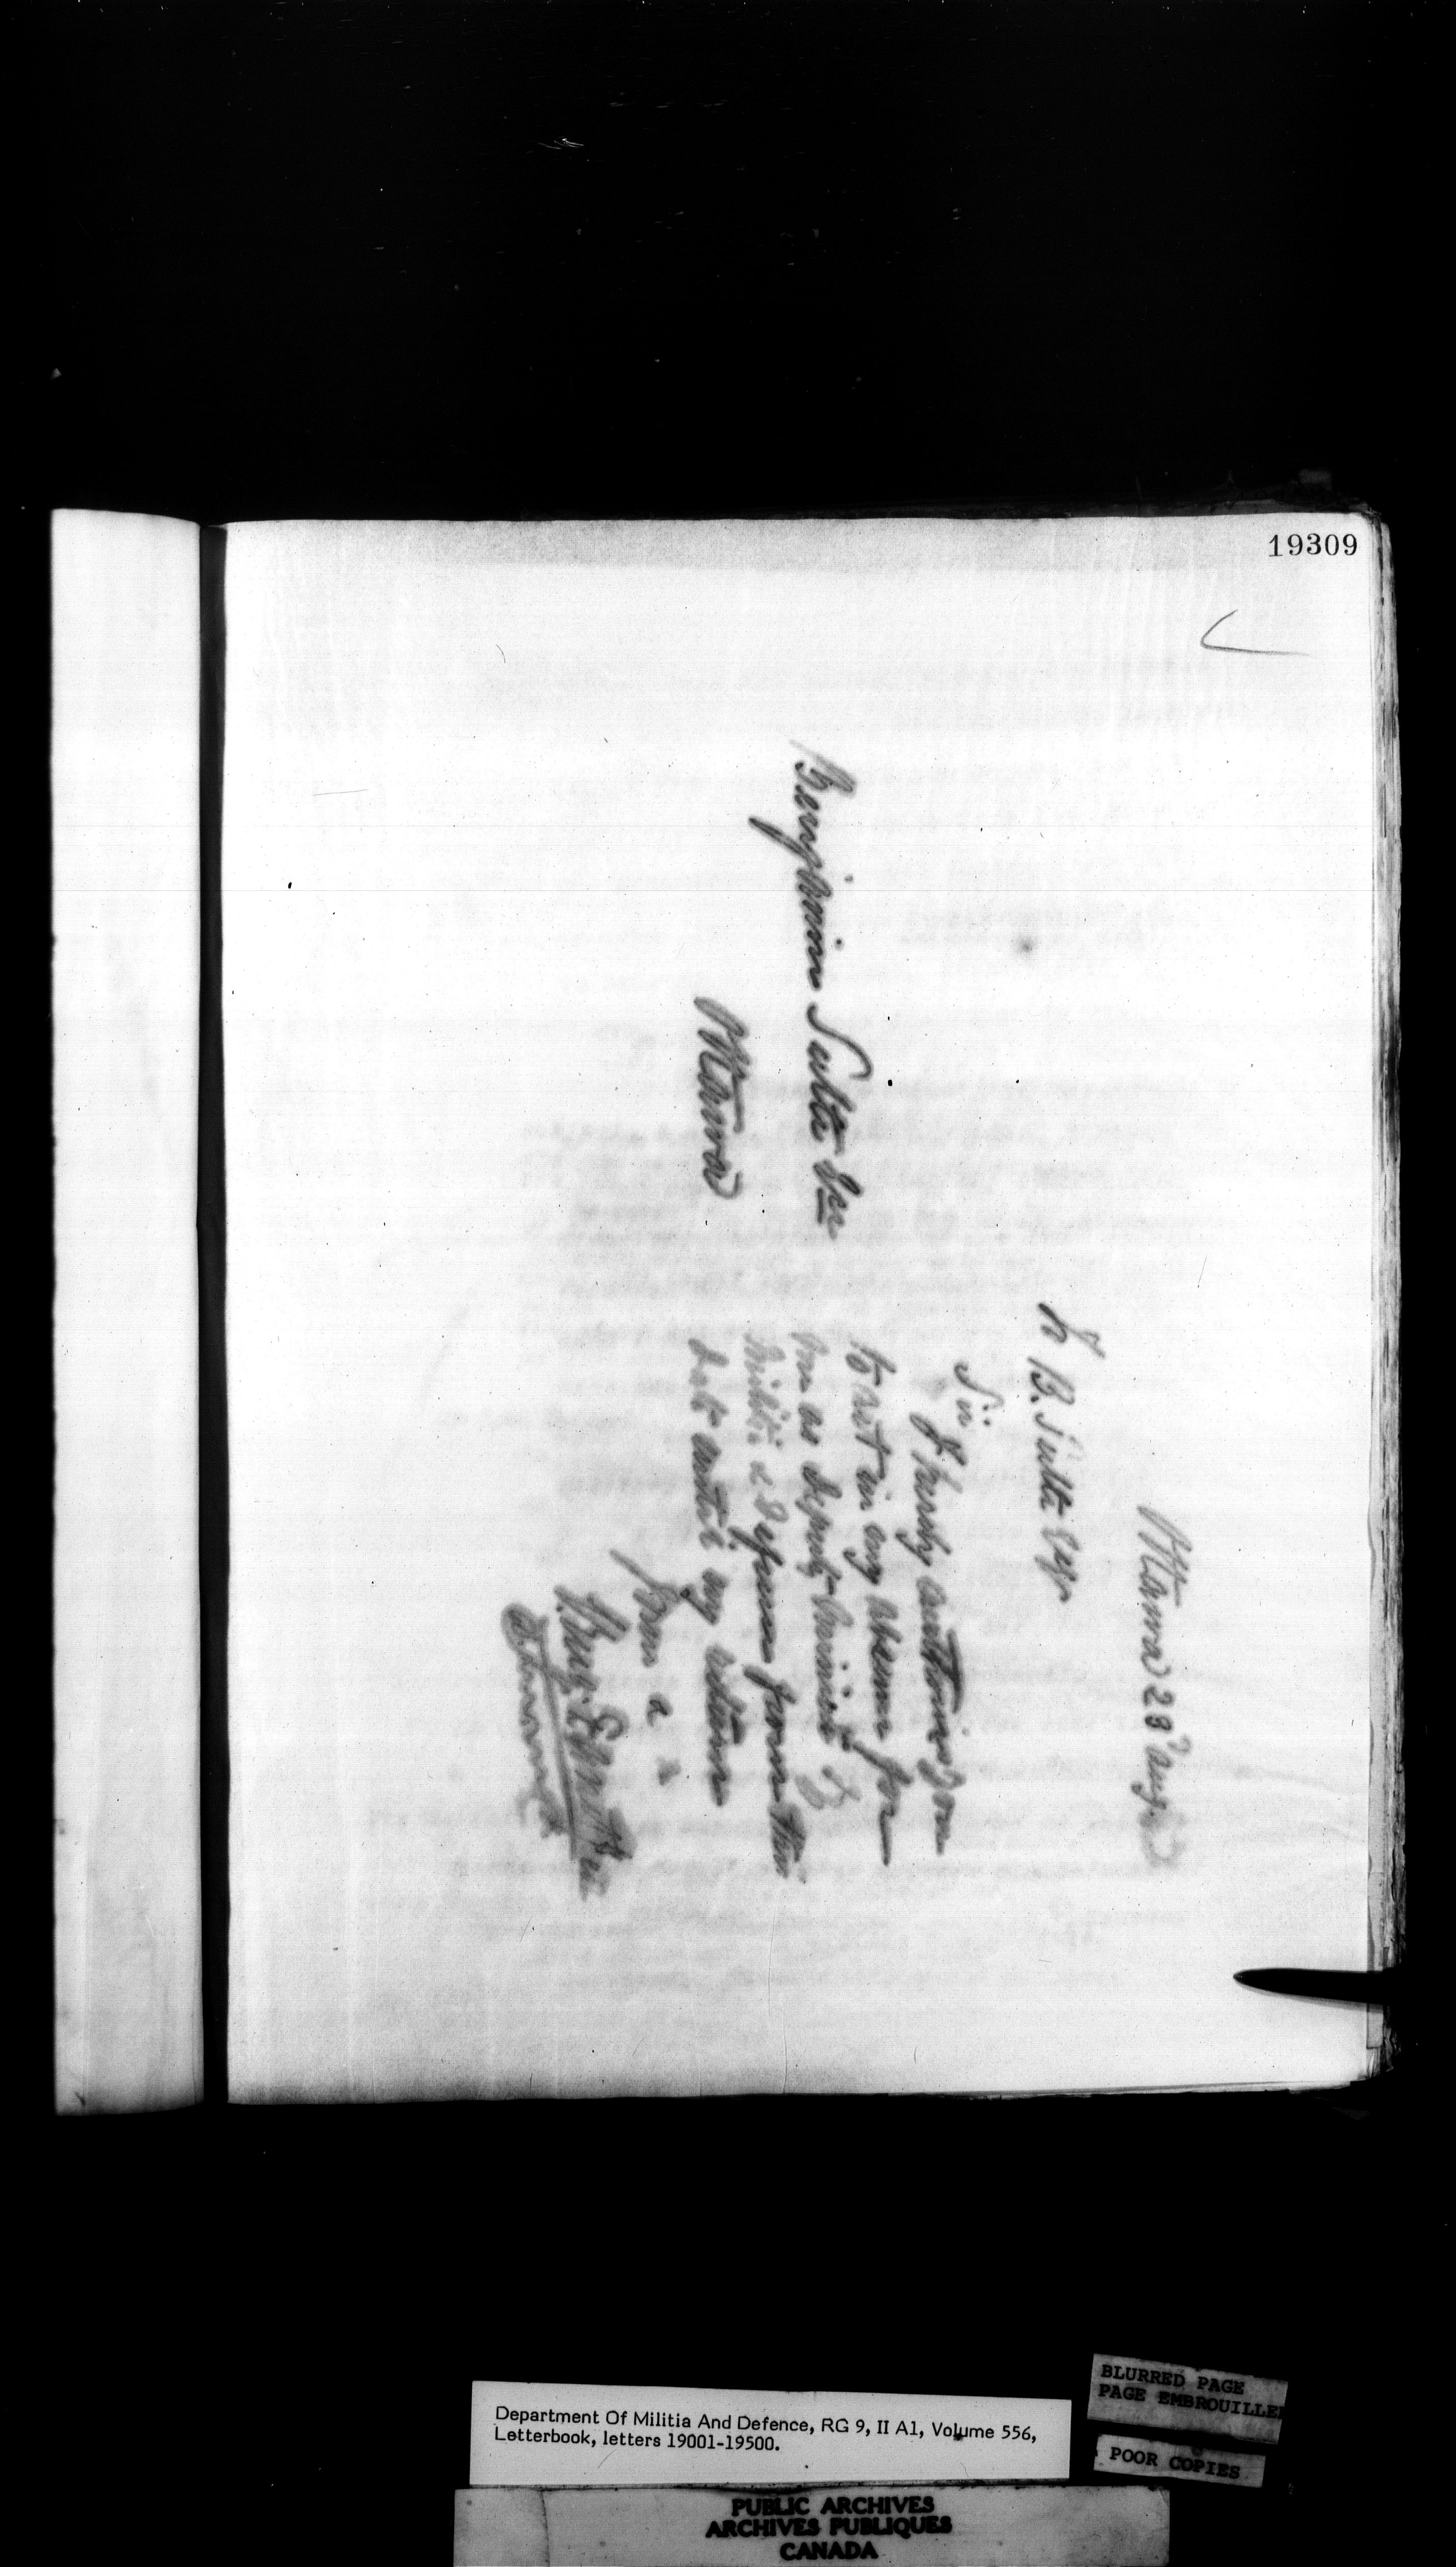 19309
Ottawa 28th Aug.
B. Sulte Esq
Sir
I hereby authorise you
to act in my absence for
me as Deputy Minister of
Militia & Defence from this
date until my return
Benjamin Sulte Esq
Ottawa
Department Of Militia And Defence, RG 9, II A1, Volume 556,
Letterbook, letters 19001-19500.
BLURRED PAGE
PAGE EMBROUILLE
POOR COPIES
PUBLIC ARCHIVES
ARCHIVES PUBLIQUES
CANADA